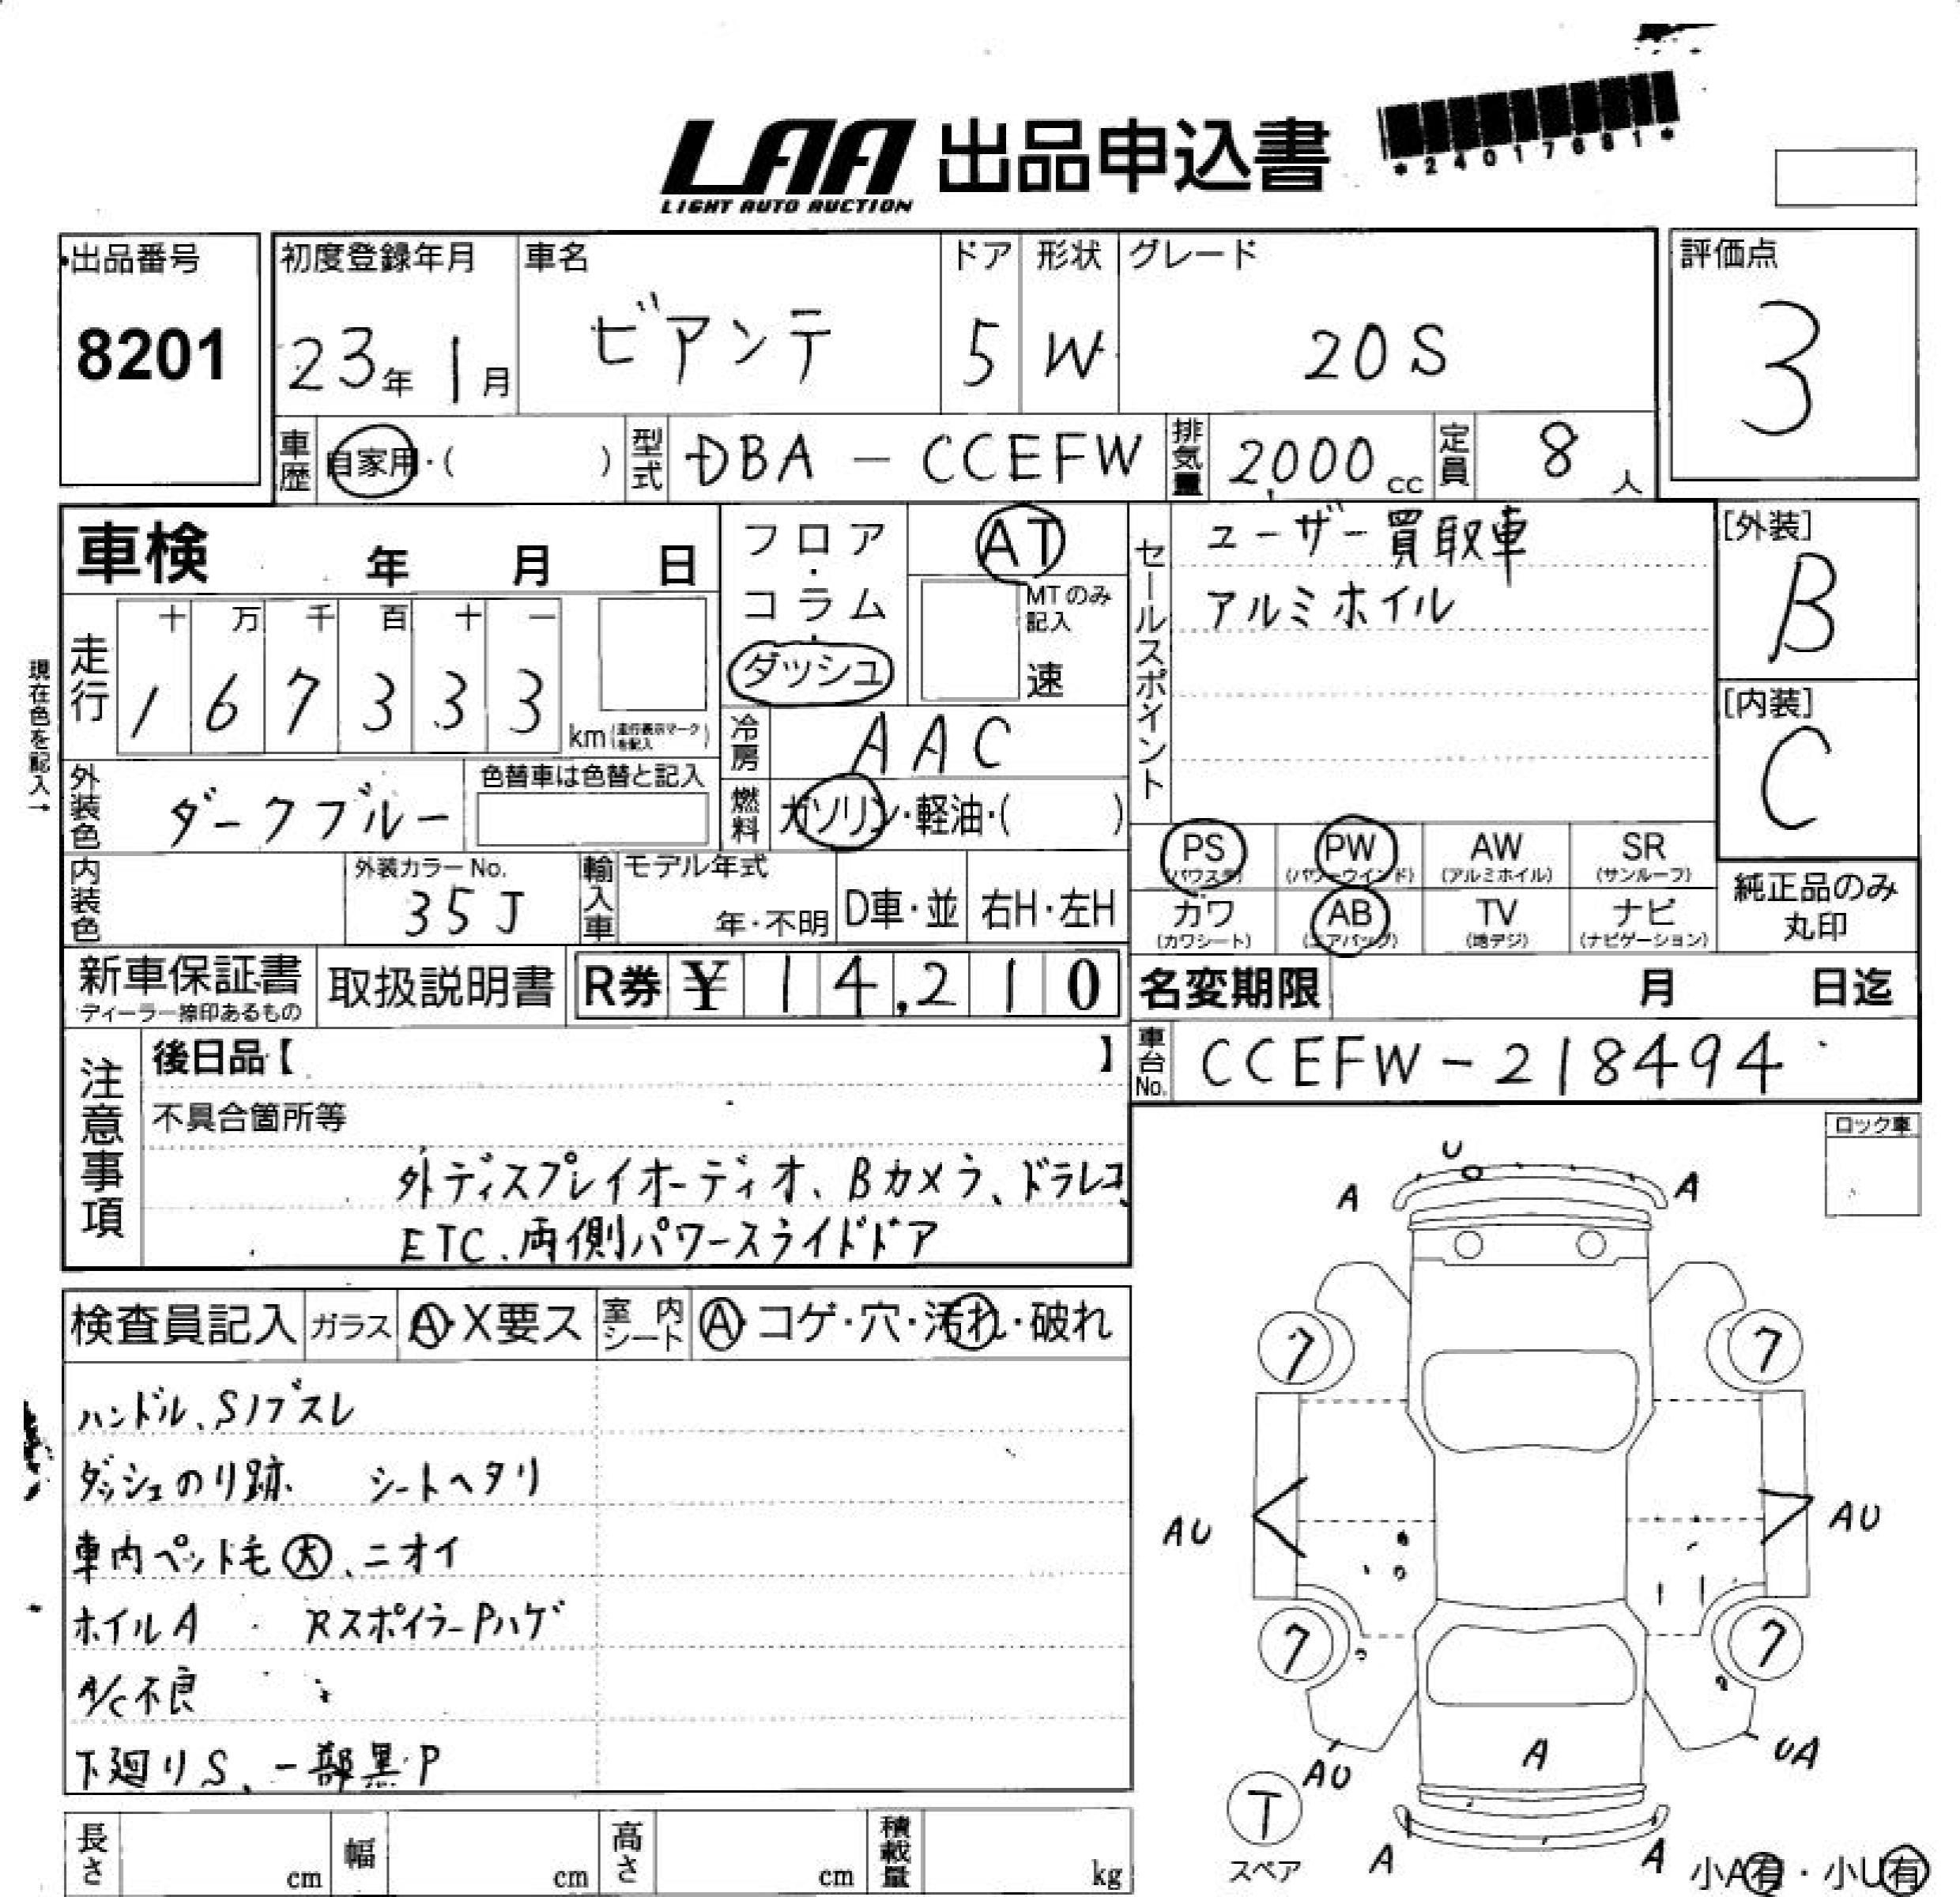 LAA 出品申込書
LIGHT AUTO AUCTION
*24017681*
出品番号 初度登録年月 車名 ドア 形状 グレード 評価点
8201 23年 1月 ビアンテ 5 W 20S 3
車歴 自家用・( ) 型式 DBA-CCEFW 排気量 2,000cc 定員 8人
車検 年 月 日
フロア・コラム・ダッシュ
AT
MTのみ記入
速
セールスポイント
ユーザー買取車
アルミホイル
[外装]
B
[内装]
C
現在色を記入→
走行 十 万 千 百 十 一
1 6 7 3 3 3 km (走行表示マークを記入)
冷房 AAC
外装色 ダークブルー 色替車は色替と記入
燃料 ガソリン・軽油・( )
内装色 外装カラーNo. 35J
輸入車 モデル年式 年・不明 D車・並 右H・左H
PS (パワステ) PW (パワーウインド) AW (アルミホイル) SR (サンルーフ)
カワ (カワシート) AB (エアバッグ) TV (地デジ) ナビ (ナビゲーション)
純正品のみ丸印
新車保証書 ディーラー捺印あるもの 取扱説明書 R券 ¥14,210
名変期限 月 日迄
車台No. CCEFW-218494
注意事項
後日品【 】
不具合箇所等
外ディスプレイオーディオ、Bカメラ、ドラレコ、
ETC、両側パワースライドドア
ロック車
検査員記入 ガラス A・X要ス 室内シート A・コゲ・穴・汚れ・破れ
ハンドル、Sノブスレ
ダッシュのり跡 シートヘタリ
車内ペット毛大、ニオイ
ホイルA Rスポイラーpハゲ
A/C不良
下廻りS、一部黒P
U
A A
7 7
AU AU
7 7
A
AU UA
T
スペア
A A
小A有・小U有
長さ cm 幅 cm 高さ cm 積載量 kg